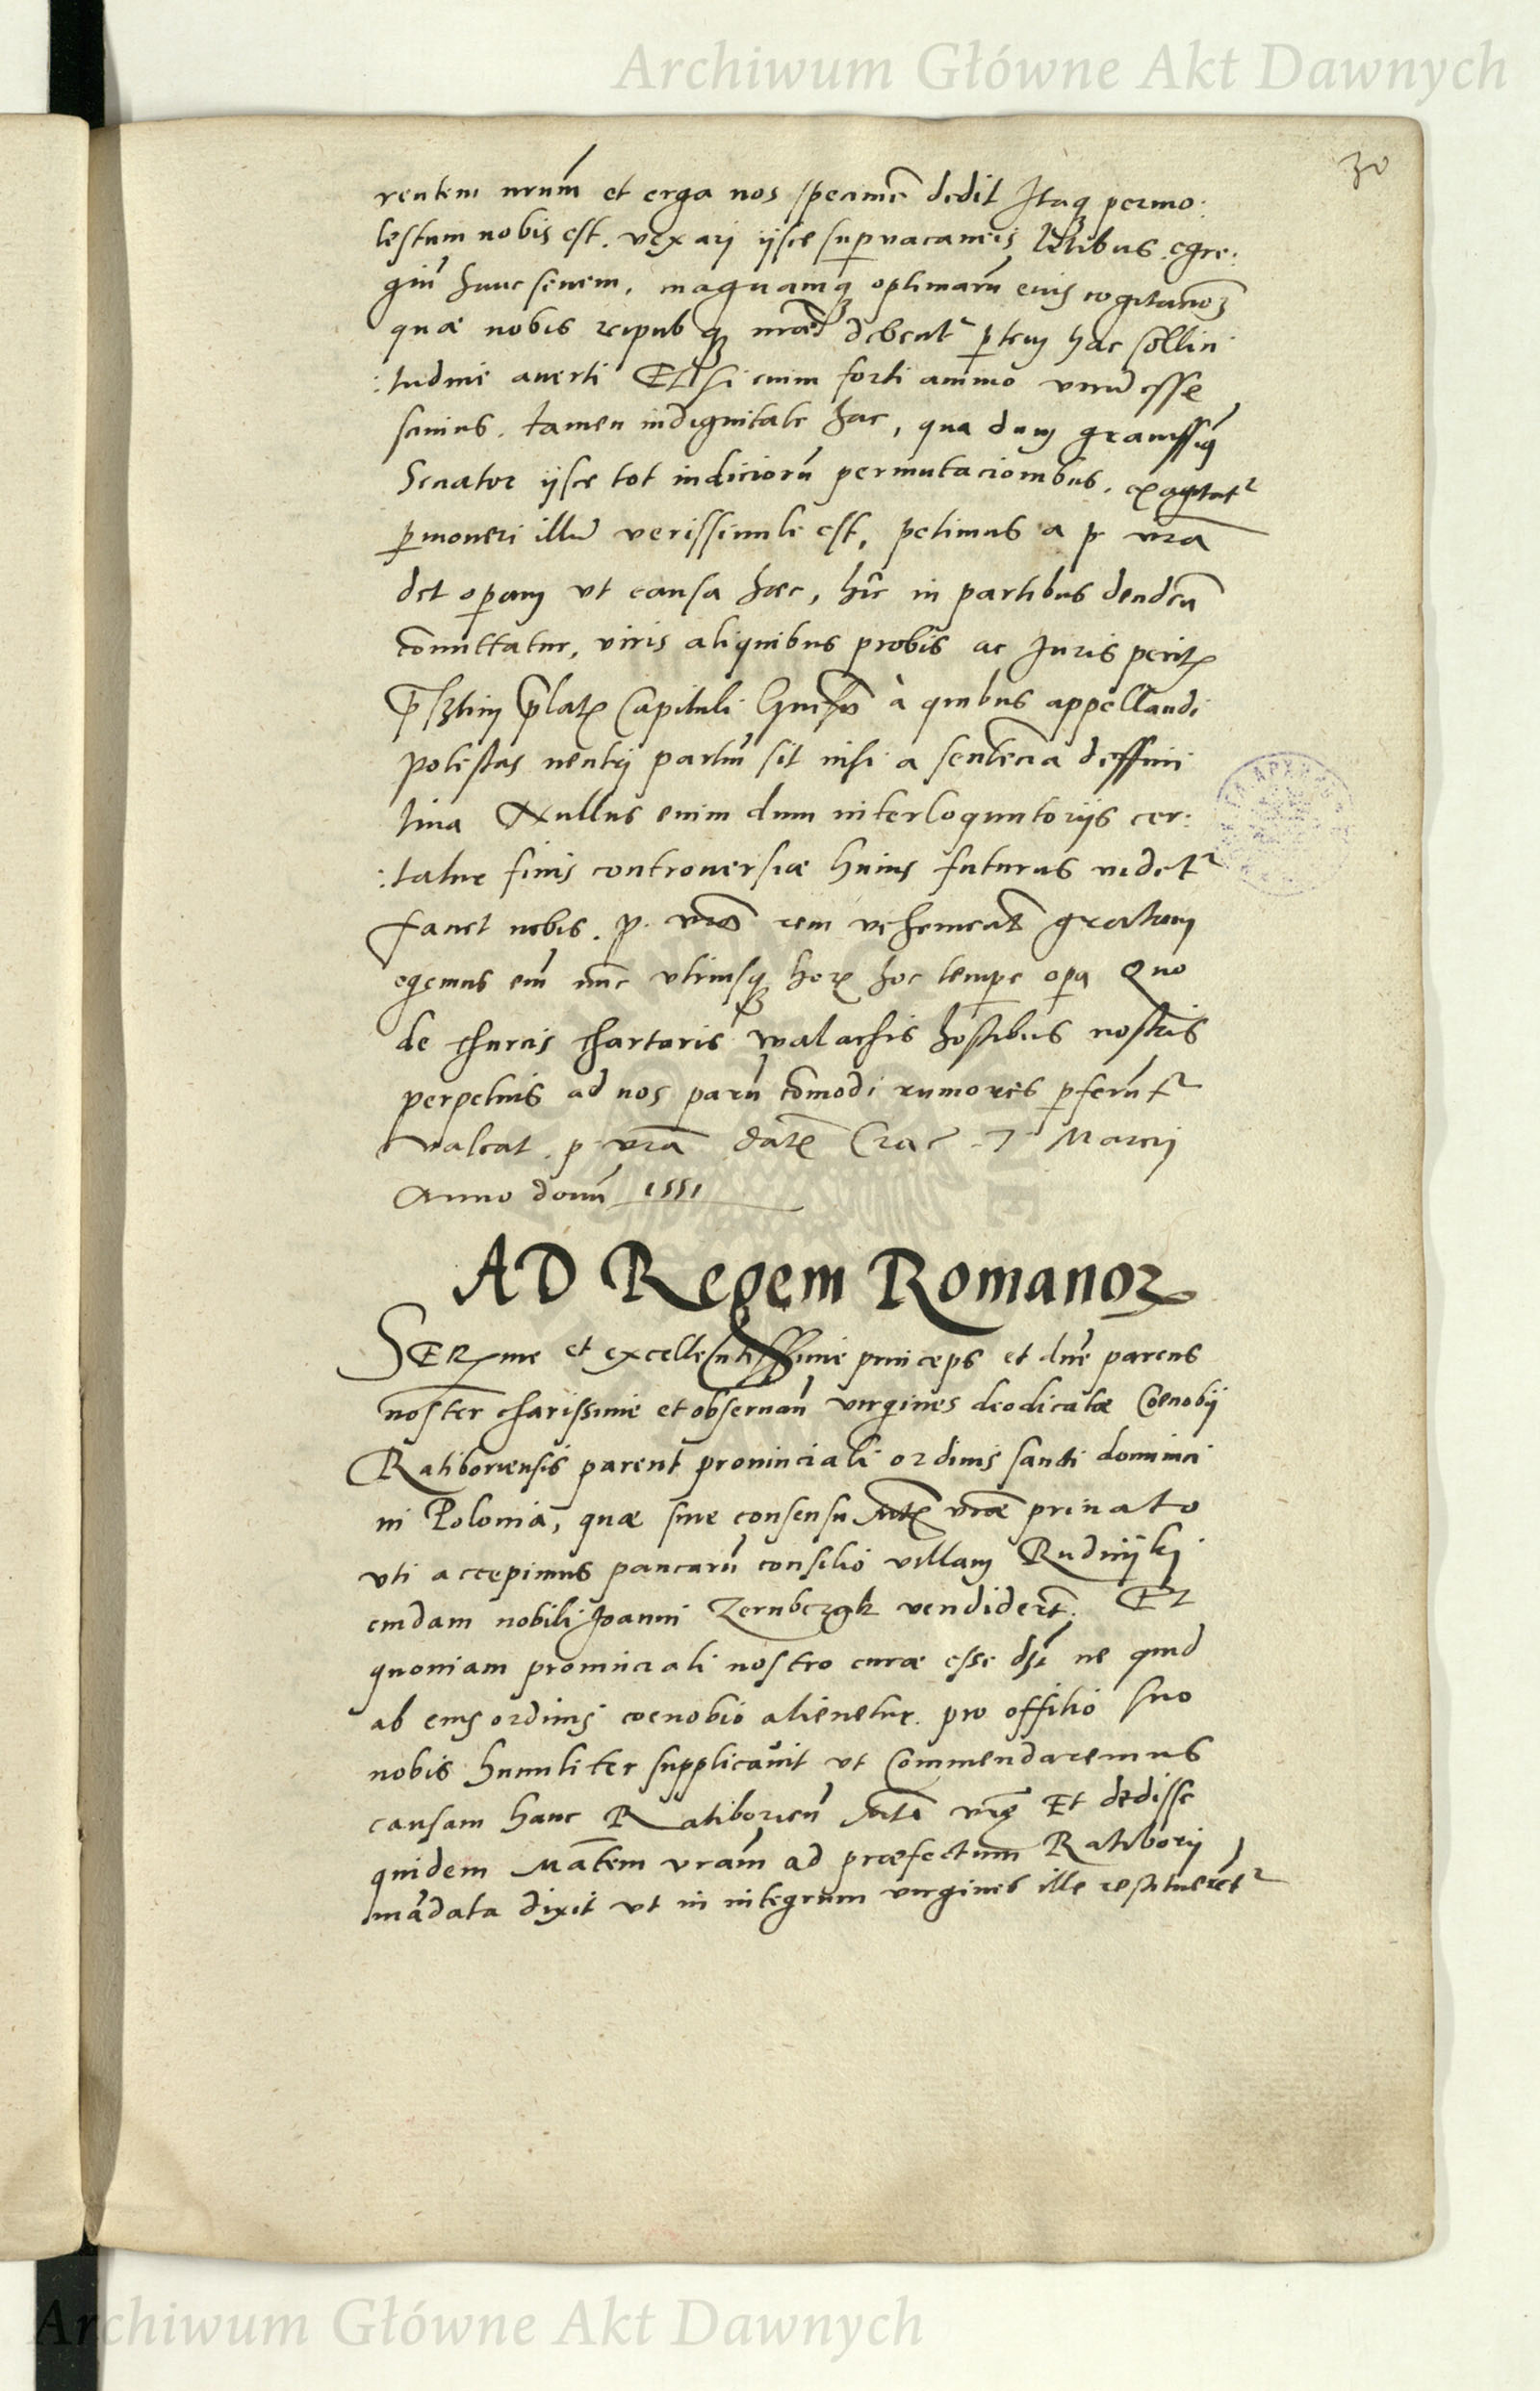 Archiwum Główne Akt Dawnych
30
rentem nrum̄ et erga nos specimē dedit Itaq; permo:
lestum nobis est. vexari ijsce supervacaneis litibus. egre:
giū hunc senem, magnamq; optimarū eius cogitationꝝ
quæ nobis reipub q; nr̄æ debentᵘʳ ꝑtem hac sollici
:tudine averti Etsi enim forti animo virū esse
scimus. tamen indignitate hac, qua dum gravissīꝯ
Senator ijsce tot iudiciorū permutacionibus. exagitatᵘʳ
ꝑmoveri illū verissimile est, petimus a p. vrā
det oꝑam ut causa hæc, hīc in partibus dendcū
com̄ittatur, viris aliquibus probis ac Juris peritꝭ
p̄sꝫtim p̄latꝭ Capituli Gnesn̄ à quibus appellandi
potestas neutrj partiū sit nisi a sentēcia deffini
tiva Nullus enim dum interloquutorijs cer:
:tatur finis controversiæ huius futurus videtᵘʳ
Faciet nobis. p. vrā rem vehemēnt gratam
egemus em̄ nūc utriusq; horꝭ hoc tempe oꝑa Quo
de thurcis thartaris walachis hostibus nostris
perpetuis ad nos parū com̄odi rumores ꝑferūtᵘʳ
Valeat. p. vrā Datꝭ Crac̄ 7 Marcij
Anno domī 1551
AD Regem Romanoꝝ
SERme et excellentissime princeps et dn̄e parens
noster charissime et observan̄ virgines deodicatæ Cœnobij
Ratiboriensis parent provinciali ordinis sancti dominici
in Polonia, quæ sine consensu Mtꝭ vræ privato
uti accepimus paucarū consilio villam Rudnijkj
cuidam nobili Joanni Zernbergk vendiderūt. Et
quoniam provinciali nostro curæ esse dꝫ ne quid
ab eius ordinis coenobio alienetur. pro offitio suo
nobis humiliter supplicavit ut Commendaremus
causam hanc Ratiborien̄ Mti vrę Et dedisse
quidem Matem vram̄ ad præfectum Ratiborij
mādata dixit ut in integrum virgines ille restitueretᵘʳ
Archiwum Główne Akt Dawnych